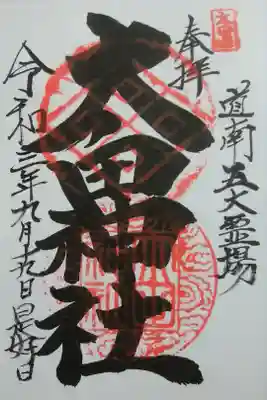 奉拝
道南五大霊場
太田神社
令和三年九月十九日